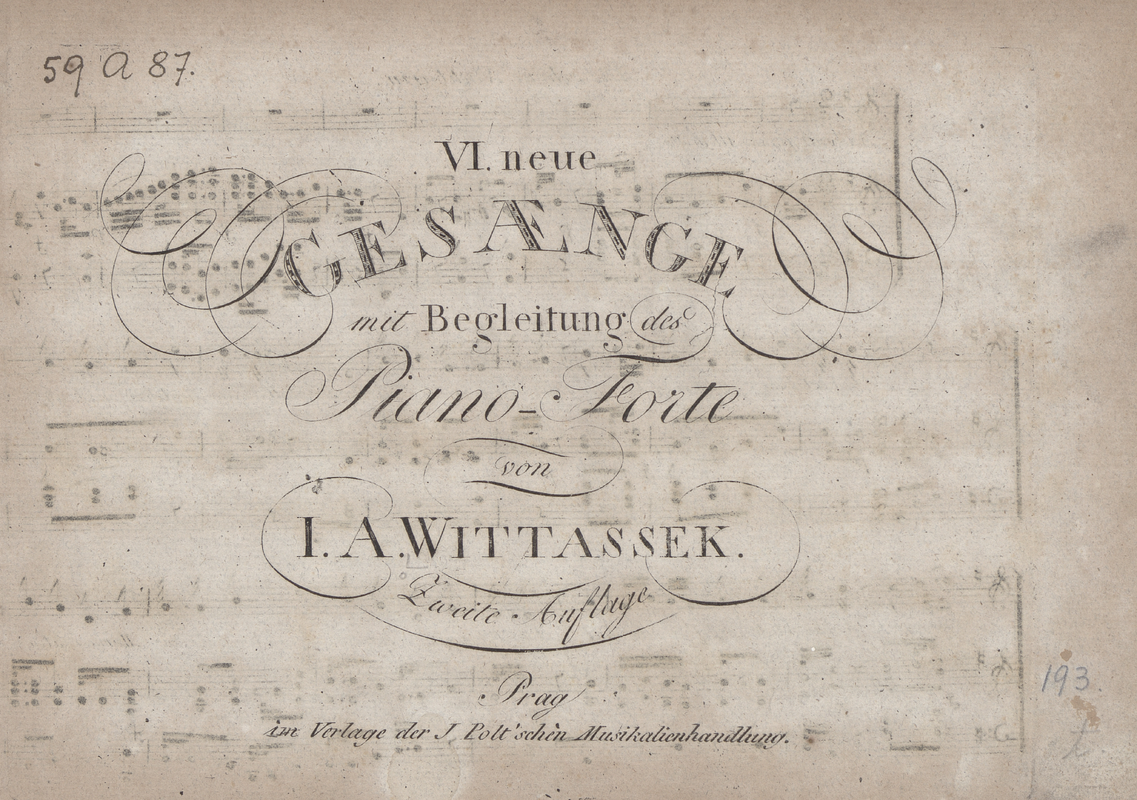 59 A 87.
VI. neue
GESÆNGE
mit Begleitung des
Piano-Forte
von
I. A. WITTASSEK.
Zweite Auflage
Prag
im Verlage der J Polt'schen Musikalienhandlung.
193